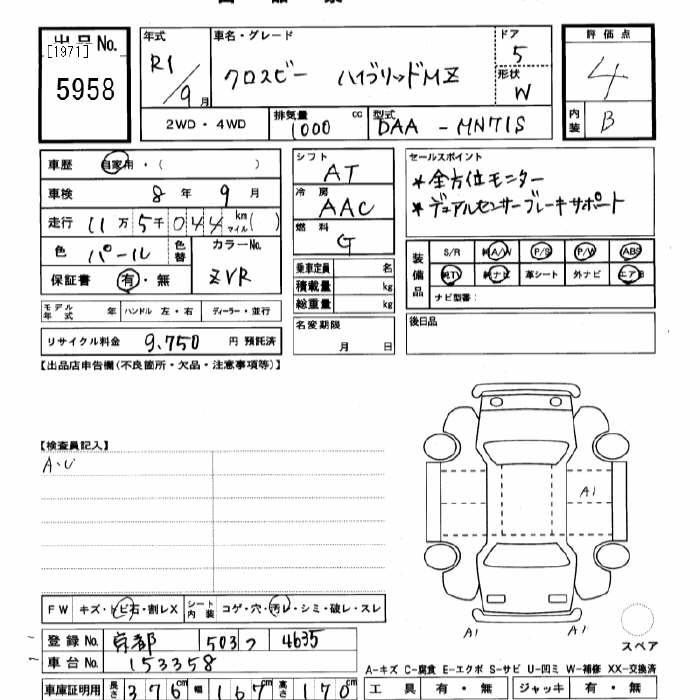 出品No.
[1971]
5958
年式 R1/9月
車名・グレード クロスビー ハイブリッドMZ
ドア 5
形状 W
2WD・4WD
排気量 1000 cc
型式 DAA-MN71S
評価点 4
内装 B
車歴 自家用・( )
車検 8年 9月
走行 11万5千044 km マイル( )
色 パール 色替
カラーNo. ZVR
保証書 有・無
モデル年式 年 ハンドル 左・右 ディーラー・並行
リサイクル料金 9,750 円 預託済
シフト AT
冷房 AAC
燃料 G
乗車定員 名
積載量 kg
総重量 kg
名変期限 月 日
セールスポイント
*全方位モニター
*デュアルセンサーブレーキサポート
装備品 S/R A/W P/S P/W ABS
TV ナビ 革シート 外ナビ エアB
ナビ型番:
後日品
【出品店申告欄(不良箇所・欠品・注意事項等)】
【検査員記入】
A・U
A1
A1
A1
スペア
FW キズ・トビ石・割レX シート内装 コゲ・穴・汚レ・シミ・破レ・スレ
登録No. 京都 503 つ 4635
車台No. 153358
車庫証明用 長さ 376cm 幅 167cm 高さ 170cm
A-キズ C-腐食 E-エクボ S-サビ U-凹ミ W-補修 XX-交換済
工具 有・無 ジャッキ 有・無